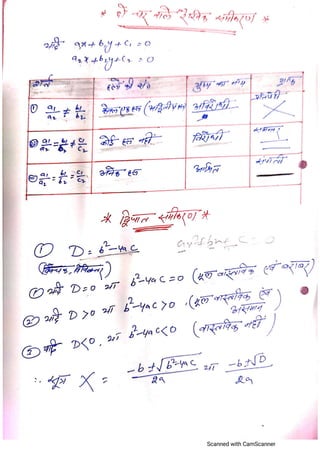 * दो चर वाले रैखिक समीकरण *
यदि a₁x + b₁y + c₁ = 0
a₂x + b₂y + c₂ = 0
शर्त हलों की सं० गुणों का नाम ग्राफ
① a₁/a₂ ≠ b₁/b₂ केवल एक हल (अद्वितीय हल) अविरोधी
② a₁/a₂ = b₁/b₂ ≠ c₁/c₂ कोई हल नहीं विरोधी
③ a₁/a₂ = b₁/b₂ = c₁/c₂ अनेक हल आश्रित
* द्विघात समीकरण *
① D = b²-4ac
① यदि D=0 या b²-4ac = 0 (मूल वास्तविक एवं बराबर)
② यदि D>0 या b²-4ac > 0 (मूल वास्तविक एवं असमान)
③ यदि D<0, या b²-4ac<0 (वास्तविक नहीं)
∴ सूत्र X = -b ± √b²-4ac / 2a या -b ± √D / 2a
Scanned with CamScanner